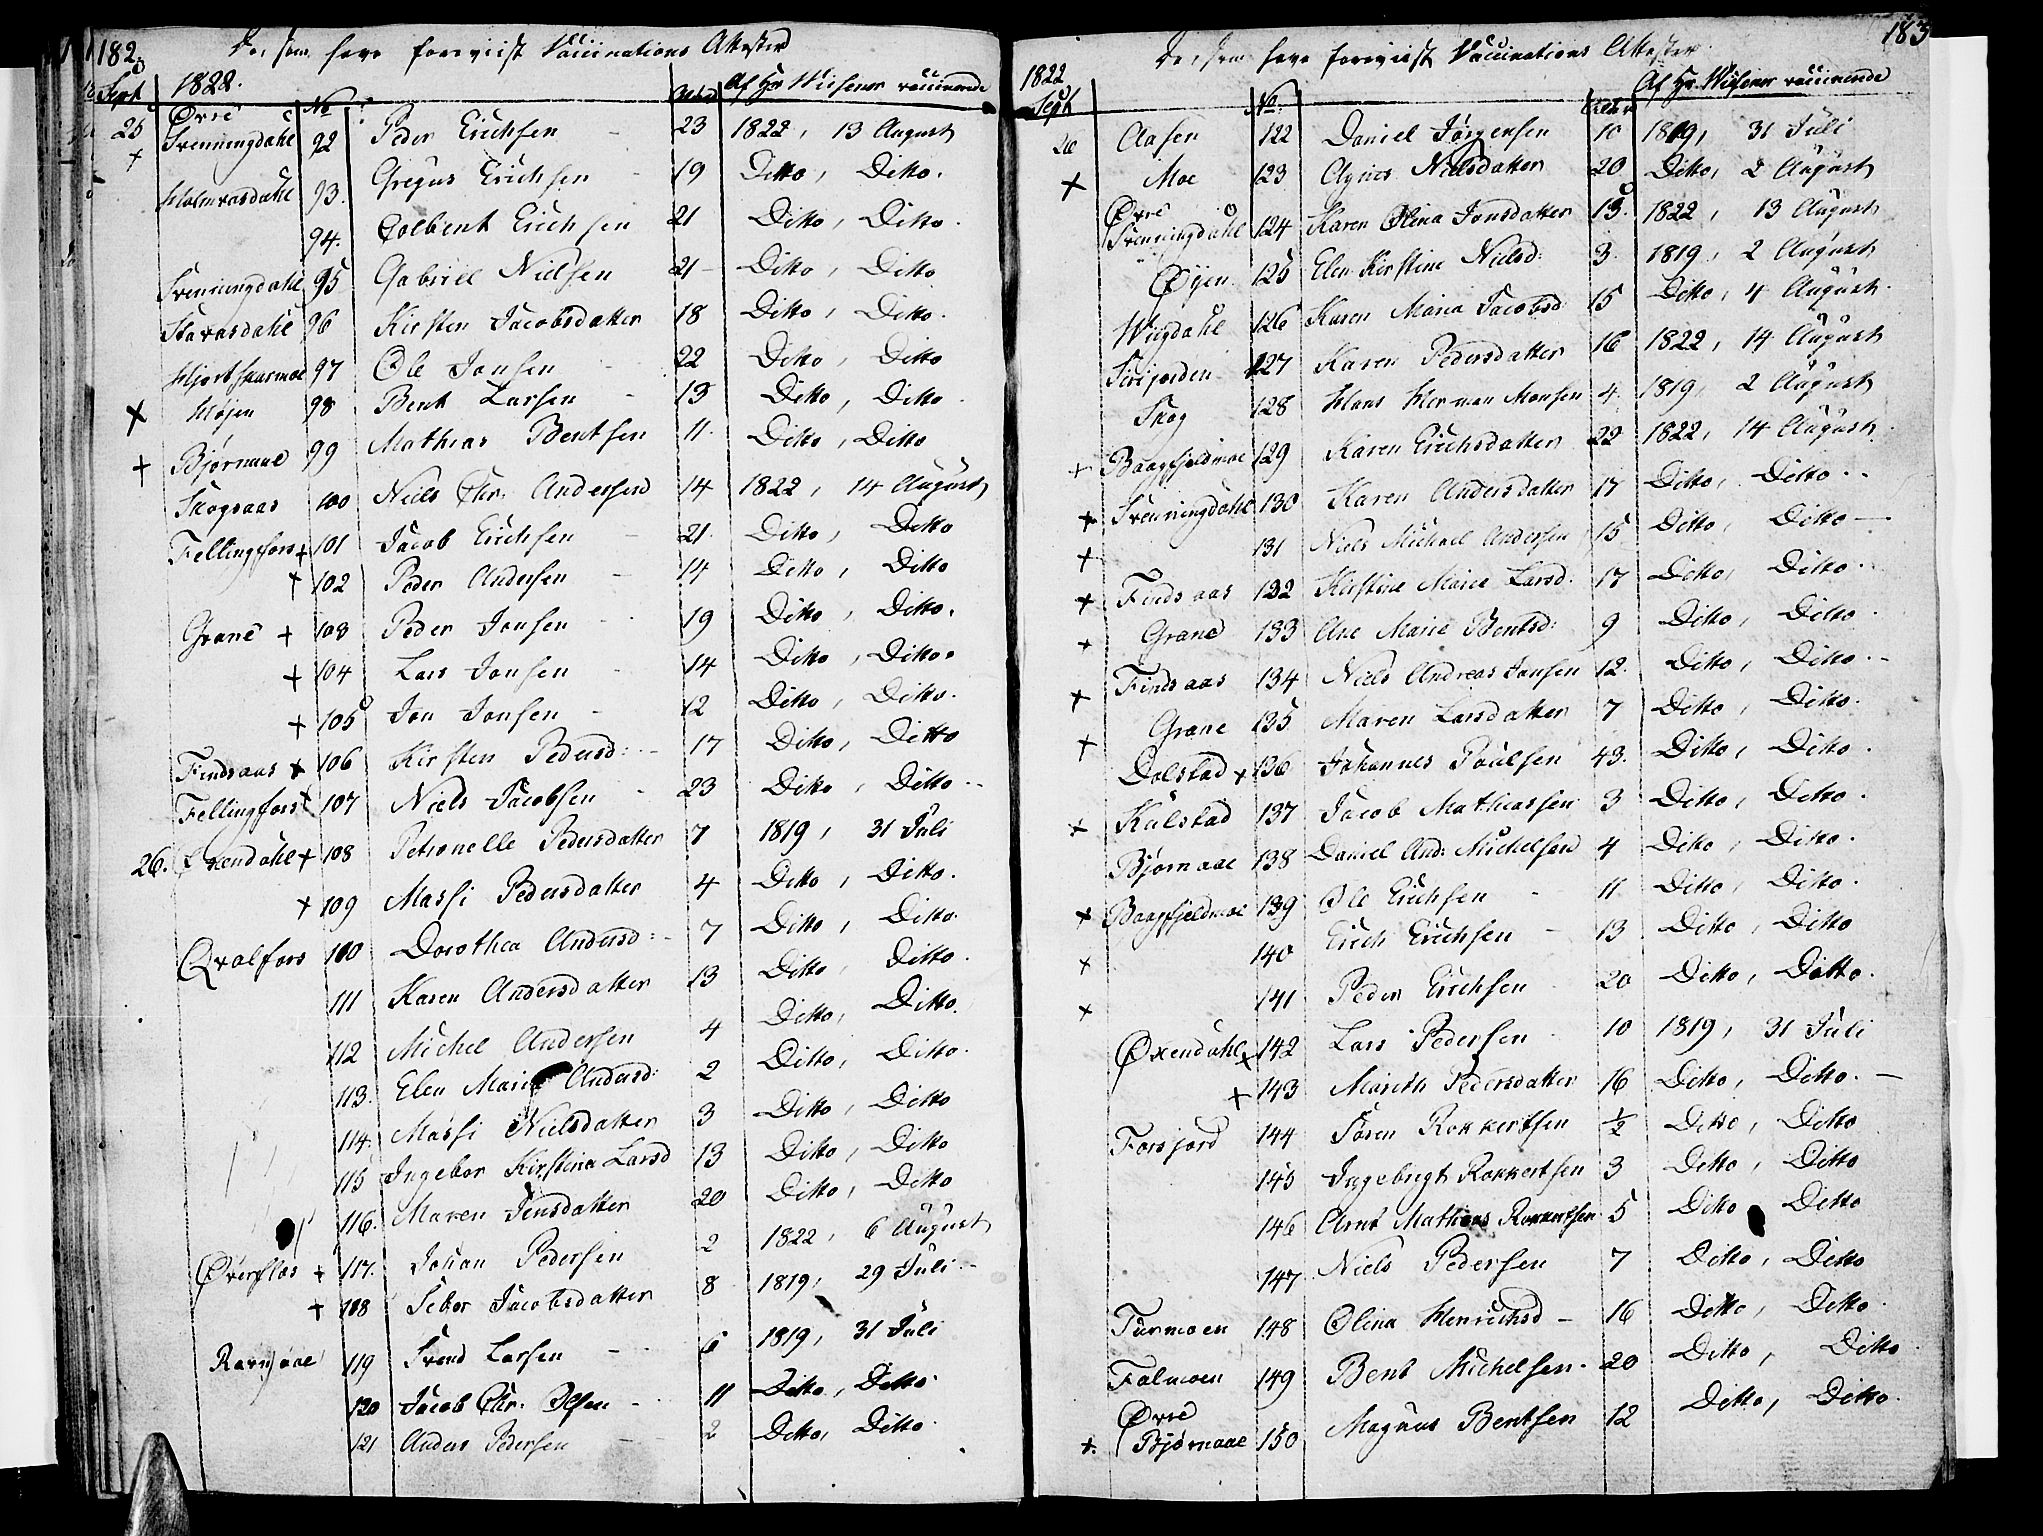 182
De, som have foreviist Vaccinations Attester
Sept 1822. No Alder Af Hr. Wiisener vaccinerede
25 Øvre Svenningdahl 92 Peder Erichsen 23 1822, 13 August
+ Holmvasdahl 93. Gregus Erichsen 19 Ditto, Ditto.
94. Golbent Erichsen 21 Ditto, Ditto.
Svenningdahl 95 Gabriel Nielsen 21 Ditto, Ditto
Stavasdahl 96 Kirsten Jacobsdatter 18 Ditto, Ditto.
Hjortskarmoe 97 Ole Jonsen 22 Ditto, Ditto
+ Højen 98 Bent Larsen 13 Ditto, Ditto
+ Bjørnaae 99 Mathias Bentsen 11. Ditto, Ditto
Skogsaas 100 Niels Chr: Andersen 14 1822, 14 August
Fellingfors + 101 Jacob Erichsen 21. Ditto, Ditto
+ 102 Peder Andersen 14 Ditto, Ditto
Grane + 103 Peder Jonsen 19 Ditto, Ditto.
+ 104 Lars Jonsen 14 Ditto, Ditto.
+ 105 Jon Jonsen 12 Ditto, Ditto.
Findsaas + 106 Kirsten Pedersd: 17 Ditto, Ditto
Fellingfors + 107 Niels Jacobsen 23 Ditto, Ditto
26. Øxendahl + 108 Petronelle Pedersdatter 7 1819, 31 Juli
+ 109 Massi Pedersdatter 4 Ditto, Ditto.
Qvalfors 110 Dorothea Andersd: 7 Ditto, Ditto.
111 Karen Andersdatter 13 Ditto, Ditto.
112 Michel Andersen 4 Ditto, Ditto.
113. Elen Marie Andersd: 2 Ditto, Ditto.
114. Massi Nielsdatter 3 Ditto, Ditto
115 Ingebor Kirstina Larsd 13 Ditto, Ditto
116. Maren Jensdatter 20 Ditto, Ditto
Øverflos + 117. Johan Pedersen 2 1822, 6 August
+ 118 Sebor Jacobsdatter 8 1819, 29 Juli
Ravnjaae 119 Svend Larsen 6 1819, 31 Juli
120 Jacob Chr. Olsen 11 Ditto, Ditto.
121 Anders Pedersen 2 Ditto, Ditto.
183
De, som have foreviist Vaccinations Attester
1822 Sept No. Alder Af Hr. Wiisener vaccinerede
26 Aasen 122 Daniel Jørgensen 10 1819, 31 Juli
+ Moe 123 Agnes Nielsdatter 20 Ditto, 2 August
Øvre Svenningdahl 124 Karen Olina Jonsdatter 13. 1822, 13 August
Øyen 125 Elen Kirstine Nielsd: 3. 1819, 2 August
Wiigdahl 126 Karen Maria Jacobsd 15 Ditto, 4 August.
Sirijorden 127 Karen Pedersdatter 16 1822, 14 August
Skog 128 Hans Herman Monsen 4. 1819, 2 August
+ Baagfjeldmoe 129 Karen Erichsdatter 22 1822, 14 August
+ Svenningdahl 130 Karen Andersdatter 17 Ditto, Ditto
+ 131 Niels Michael Andersen 15 Ditto, Ditto
+ Findsaas 132 Kirstine Marie Larsd: 17 Ditto, Ditto.
+ Grane 133 Ane Marie Bentsd: 9 Ditto, Ditto
+ Findsaas 134 Niels Andreas Jonsen 12. Ditto, Ditto
+ Grane 135 Maren Larsdatter 7 Ditto, Ditto.
Dolstad + 136 Johannes Poulsen 43. Ditto, Ditto.
+ Kulstad 137 Jacob Mathiassen 3 Ditto, Ditto.
Bjørnaae 138 Daniel And: Michelsen 4 Ditto, Ditto.
+ Baagfjeldmoe 139 Ole Erichsen 11 Ditto, Ditto.
+ 140 Erich Erichsen 13 Ditto, Ditto
+ 141 Peder Erichsen 20 Ditto, Ditto.
Øxendahl + 142 Lars Pedersen 10 1819, 31 Juli
+ 143 Mareth Pedersdatter 16 Ditto, Ditto.
Forsjord 144 Søren Rokkertsen ½ Ditto, Ditto
145 Ingebrigt Rokkertsen 3 Ditto, Ditto
146 Arnt Mathias Rokkertsen 5 Ditto Ditto
147 Niels Pedersen 7 Ditto, Ditto
Turmoen 148 Olina Henrichsd 16 Ditto, Ditto
Falmoen 149 Bent Michelsen 20 Ditto, Ditto
+ Øvre Bjørnaae 150 Magnus Bentsen 12 Ditto, Ditto.